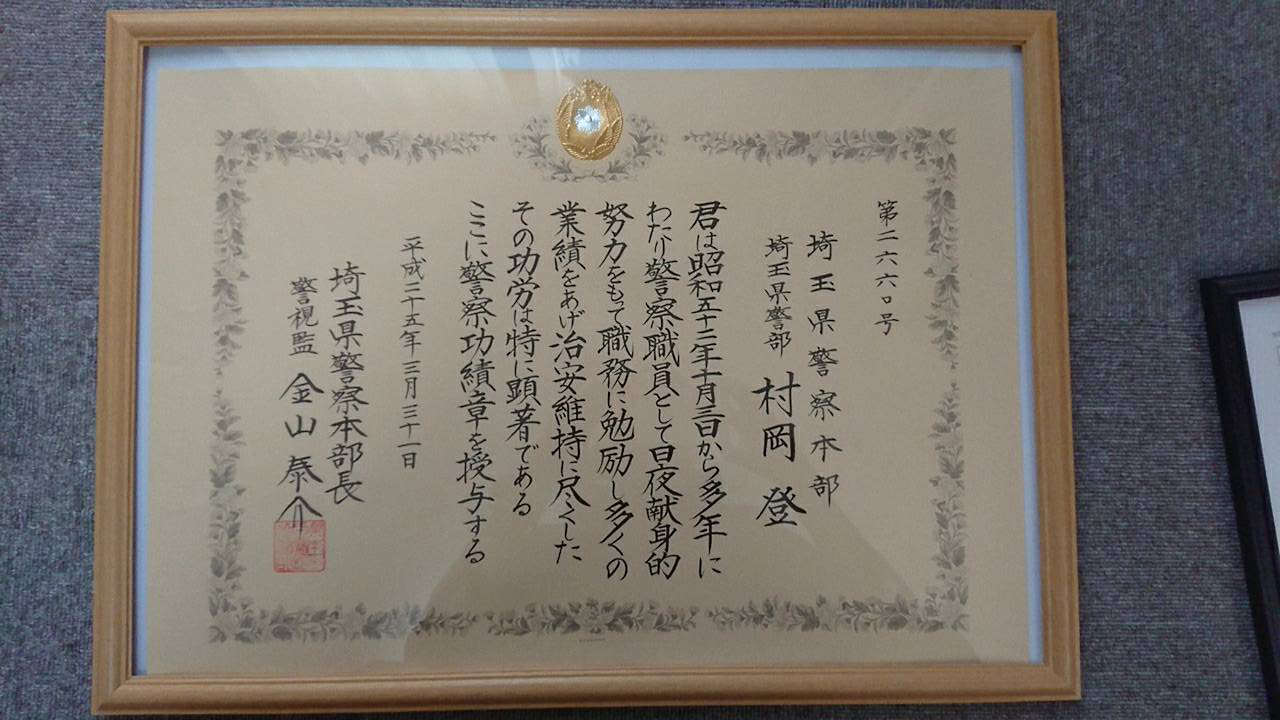 第二六六〇号
埼玉県警察本部
埼玉県警部 村岡 登
君は昭和五十二年十月三日から多年に
わたり警察職員として日夜献身的
努力をもって職務に勉励し多くの
業績をあげ治安維持に尽くした
その功労は特に顕著である
ここに警察功績章を授与する
平成二十五年三月三十一日
埼玉県警察本部長
警視監 金山泰介